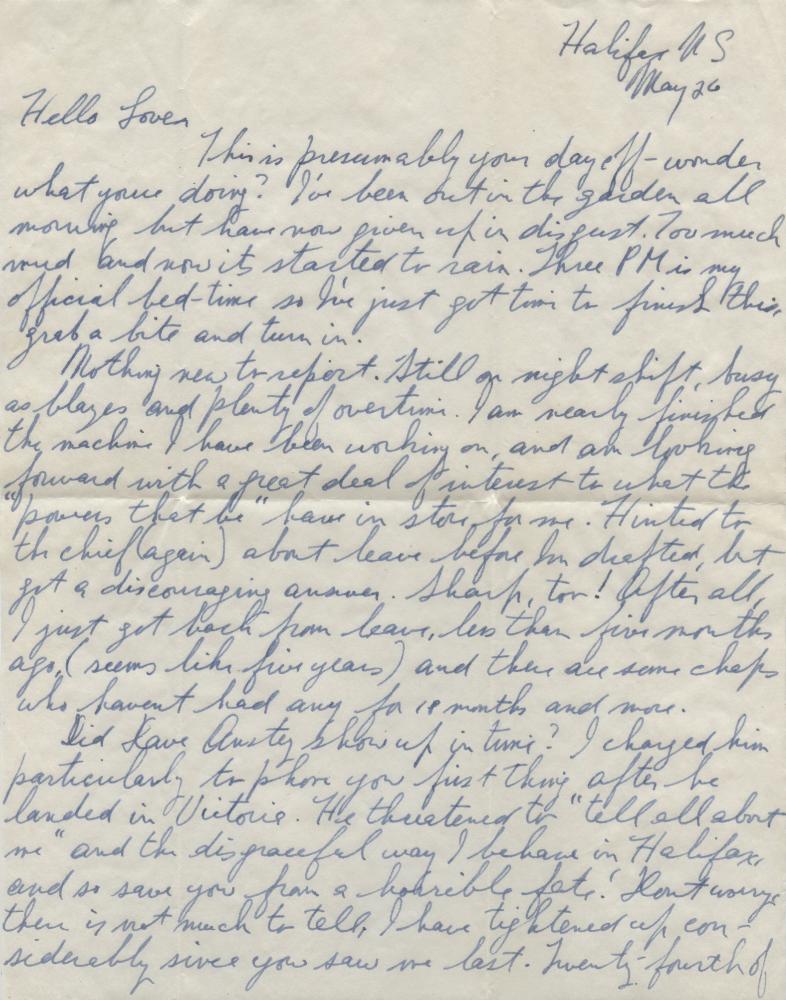 Halifax NS
May 26
Hello Lover
This is presumably your day off - wonder
what youre doing? I've been out in the garden all
morning but have now given up in disgust. Too much
mud and now its started to rain. Three PM is my
official bed-time so I've just got time to finish this,
grab a bite and turn in.
Nothing new to report. Still on night shift, busy
as blazes and plenty of overtime. I am nearly finished
the machine I have been working on, and am looking
forward with a great deal of interest to what the
"powers that be" have in store for me. Hinted to
the chief (again) about leave before Im drafted, but
got a discouraging answer. Sharp, too! After all,
I just got back from leave, less than five months
ago, (seems like five years) and there are some chaps
who havent had any for 18 months and more.
Did Dave Anstey show up in time? I charged him
particularly to phone you first thing after he
landed in Victoria. He threatened to "tell all about
me" and the disgraceful way I behave in Halifax,
and so save you from a horrible fate! Dont worry,
there is not much to tell, I have tightened up con-
siderably since you saw me last. Twenty-fourth of